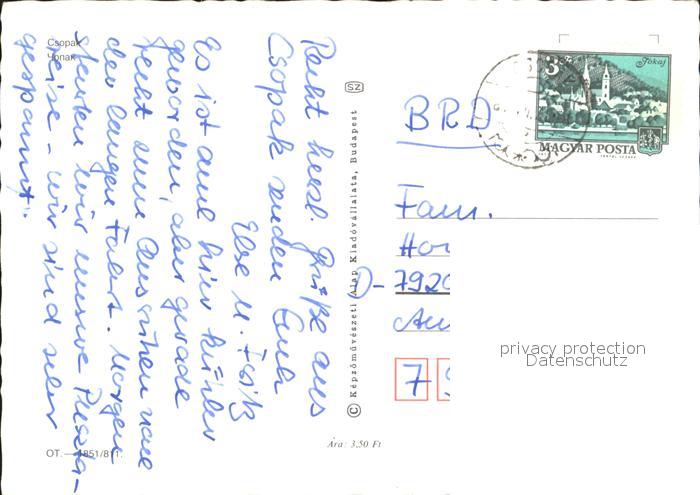 Csopak
Чопак
Recht herzl. Grüße aus
Csopak senden Euch
Else u. Fritz
Es ist auch hier kühler
geworden, aber gerade
recht zum Ausruhen nach
der langen Fahrt. Morgen
starten wir unsere Puszta-
reise - wir sind sehr
gespannt.
OT. — 1851/811.
SZ
© Képzőművészeti Alap Kiadóvállalata, Budapest
Ára: 3,50 Ft
3 Ft
Tokaj
MAGYAR POSTA
BRD
Fam.
D-792
7
privacy protection
Datenschutz